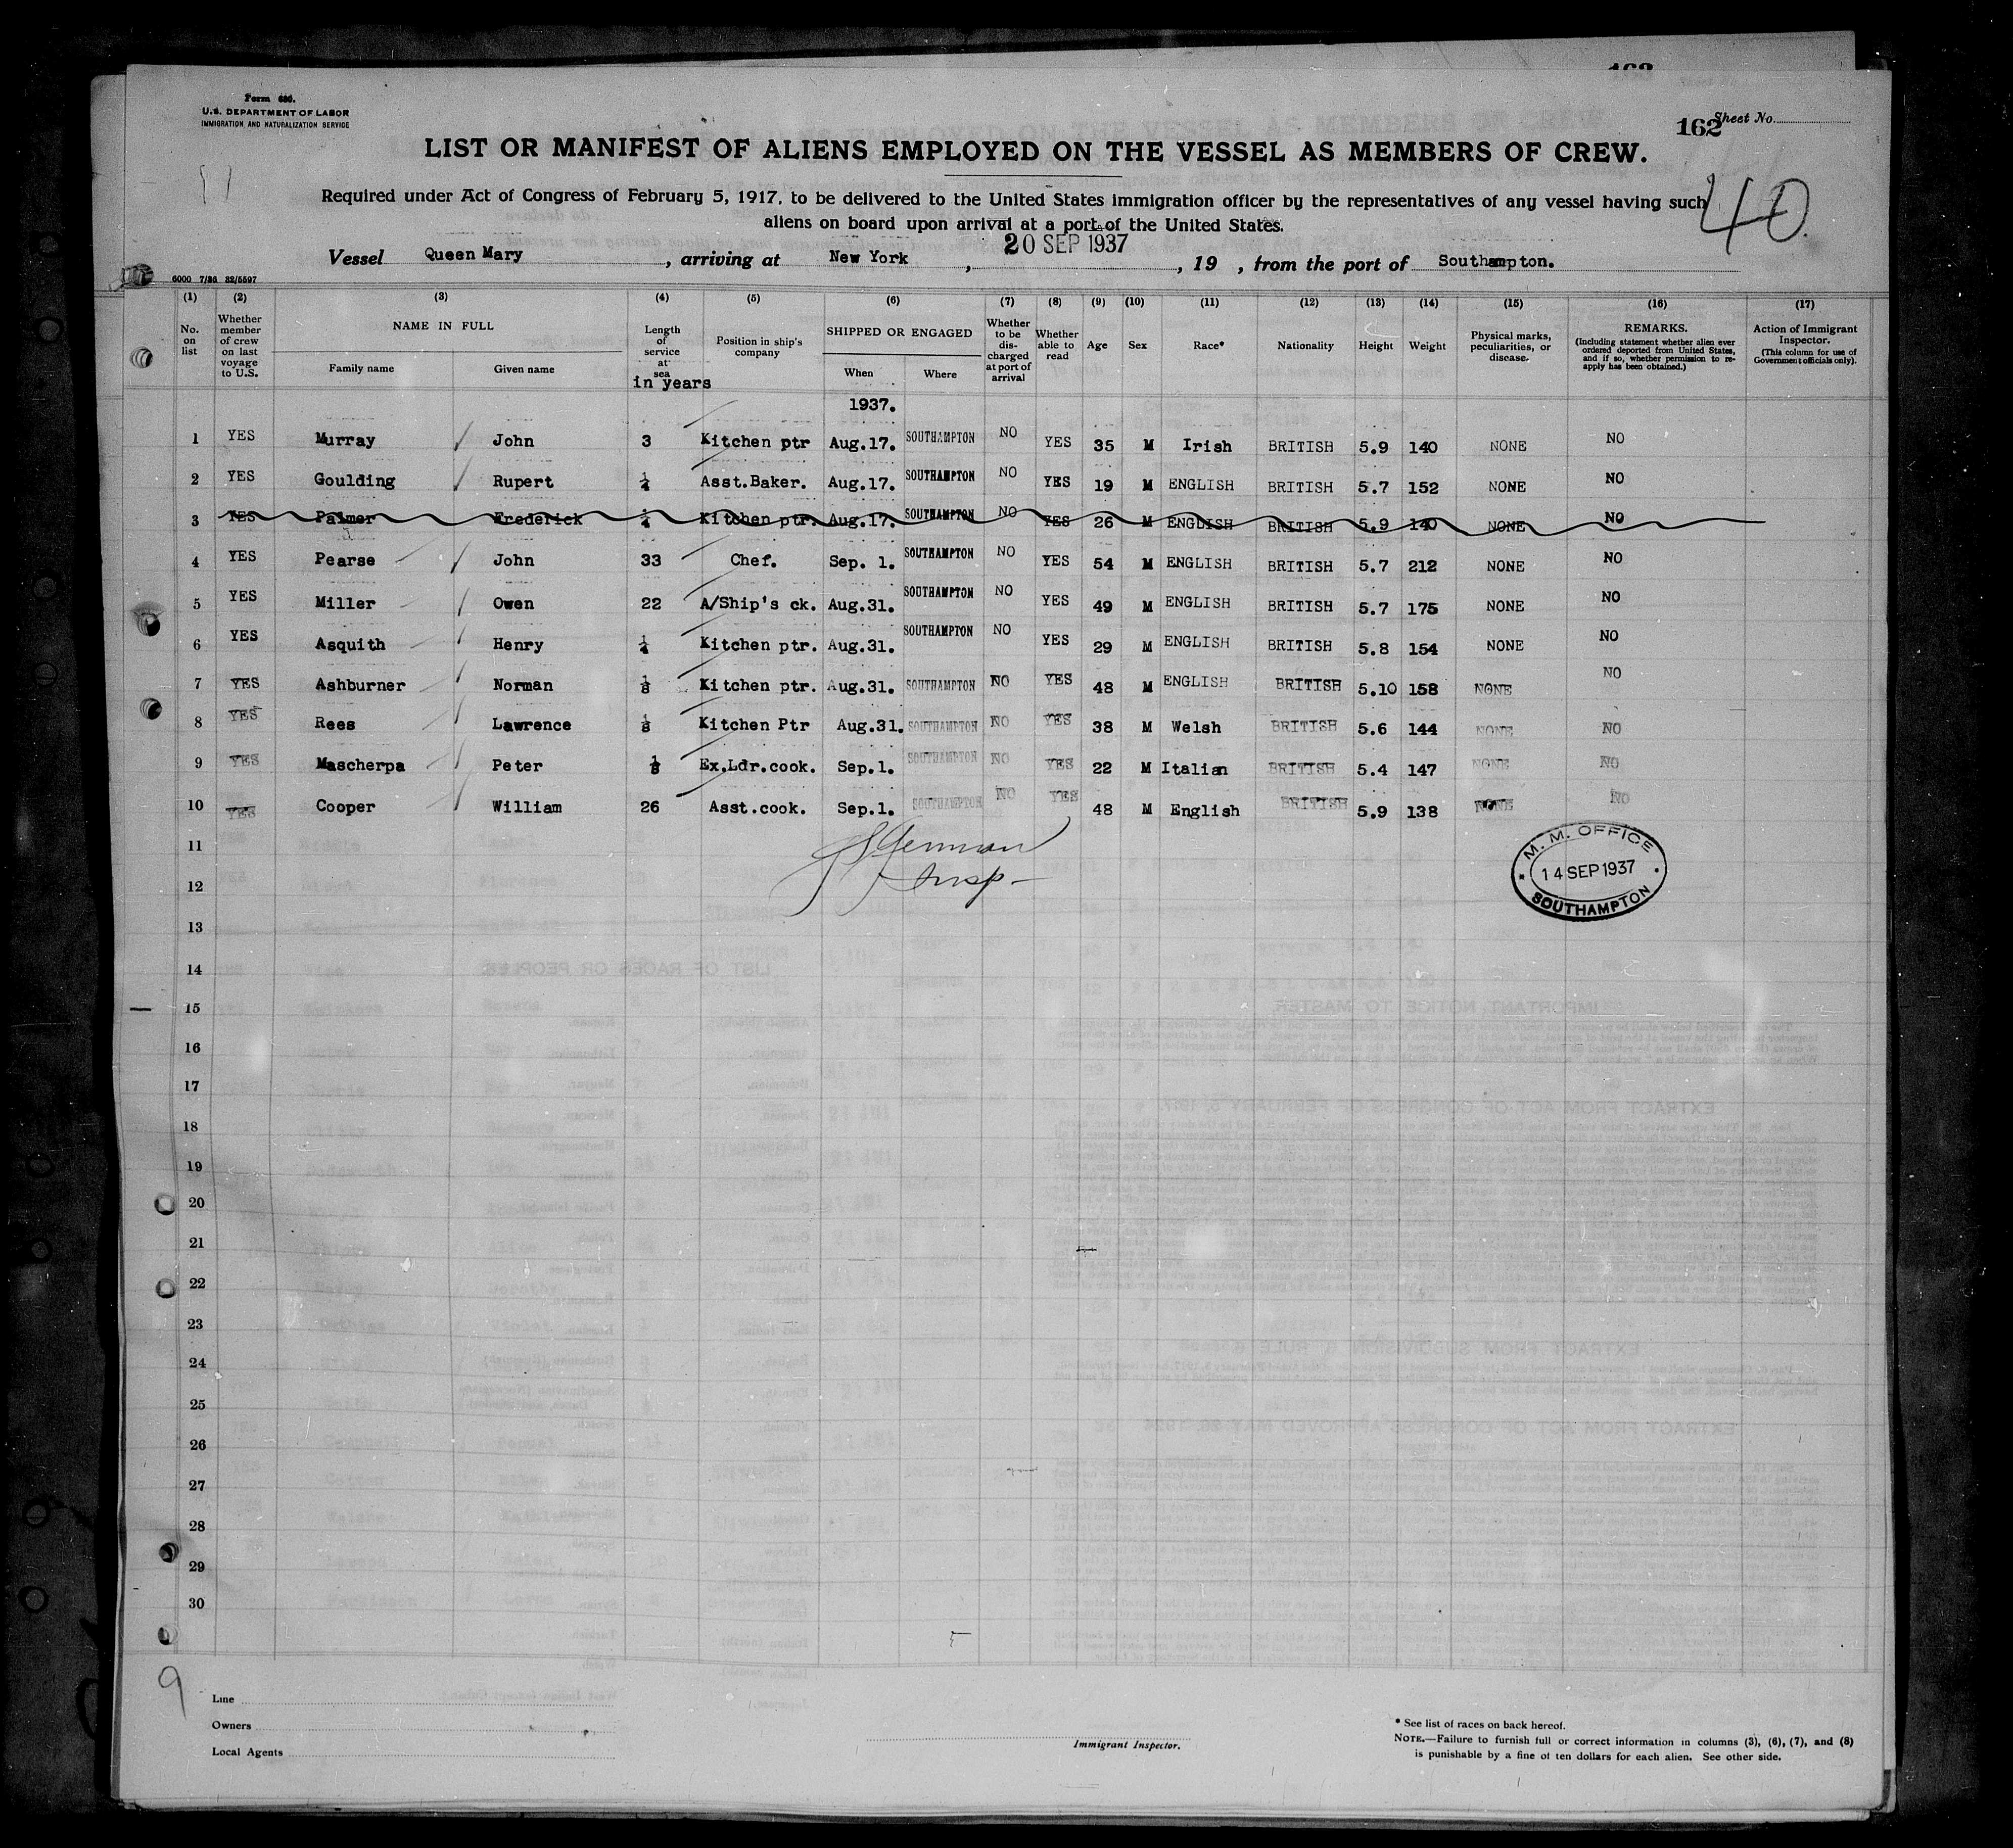 Form 680.
U.S. DEPARTMENT OF LABOR
IMMIGRATION AND NATURALIZATION SERVICE
162
Sheet No.
LIST OR MANIFEST OF ALIENS EMPLOYED ON THE VESSEL AS MEMBERS OF CREW.
40.
Required under Act of Congress of February 5, 1917, to be delivered to the United States immigration officer by the representatives of any vessel having such
aliens on board upon arrival at a port of the United States.
Vessel Queen Mary, arriving at New York, 20 SEP 1937, 19 , from the port of Southampton.
6000 7/36 32/5597
(1) (2) (3) (4) (5) (6) (7) (8) (9) (10) (11) (12) (13) (14) (15) (16) (17)
No. on list
Whether member of crew on last voyage to U.S.
NAME IN FULL
Family name Given name
Length of service at sea
in years
Position in ship's company
SHIPPED OR ENGAGED
When Where
Whether to be discharged at port of arrival
Whether able to read
Age Sex Race* Nationality Height Weight
Physical marks, peculiarities, or disease.
REMARKS.
(Including statement whether alien ever ordered deported from United States, and if so, whether permission to re-apply has been obtained.)
Action of Immigrant Inspector.
(This column for use of Government officials only).
1937.
1 YES Murray John 3 Kitchen ptr Aug.17. SOUTHAMPTON NO YES 35 M Irish BRITISH 5.9 140 NONE NO
2 YES Goulding Rupert ¼ Asst.Baker. Aug.17. SOUTHAMPTON NO YES 19 M ENGLISH BRITISH 5.7 152 NONE NO
3 YES Palmer Frederick ¼ Kitchen ptr. Aug.17. SOUTHAMPTON NO YES 26 M ENGLISH BRITISH 5.9 140 NONE NO
4 YES Pearse John 33 Chef. Sep. 1. SOUTHAMPTON NO YES 54 M ENGLISH BRITISH 5.7 212 NONE NO
5 YES Miller Owen 22 A/Ship's ck. Aug.31. SOUTHAMPTON NO YES 49 M ENGLISH BRITISH 5.7 175 NONE NO
6 YES Asquith Henry ¼ Kitchen ptr. Aug.31. SOUTHAMPTON NO YES 29 M ENGLISH BRITISH 5.8 154 NONE NO
7 YES Ashburner Norman ⅛ Kitchen ptr. Aug.31. SOUTHAMPTON NO YES 48 M ENGLISH BRITISH 5.10 158 NONE NO
8 YES Rees Lawrence ⅛ Kitchen Ptr Aug.31. SOUTHAMPTON NO YES 38 M Welsh BRITISH 5.6 144 NONE NO
9 YES Mascherpa Peter ⅛ Ex.Ldr.cook. Sep.1. SOUTHAMPTON NO YES 22 M Italian BRITISH 5.4 147 NONE NO
10 YES Cooper William 26 Asst.cook. Sep.1. SOUTHAMPTON NO YES 48 M English BRITISH 5.9 138 NONE NO
11
Insp
M. M. OFFICE
14 SEP 1937
SOUTHAMPTON
12
13
14
15
16
17
18
19
20
21
22
23
24
25
26
27
28
29
30
9
Line
Owners
Local Agents
Immigrant Inspector.
* See list of races on back hereof.
NOTE.—Failure to furnish full or correct information in columns (3), (6), (7), and (8)
is punishable by a fine of ten dollars for each alien. See other side.